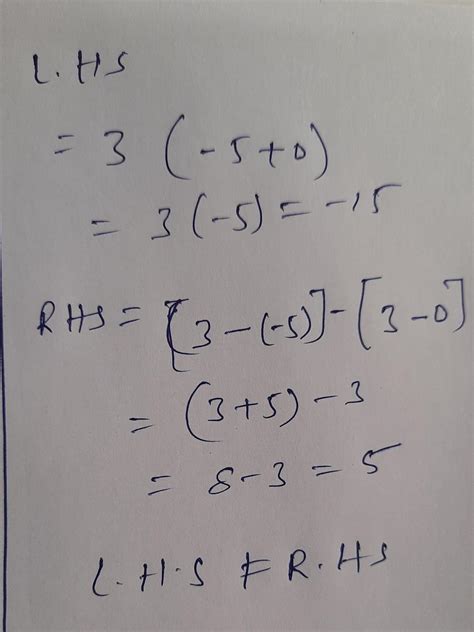 L.HS
= 3 (-5+0)
= 3(-5) = -15
RHS = [3-(-5)]-[3-0]
= (3+5)-3
= 8-3 = 5
L.H.S ≠ R.HS